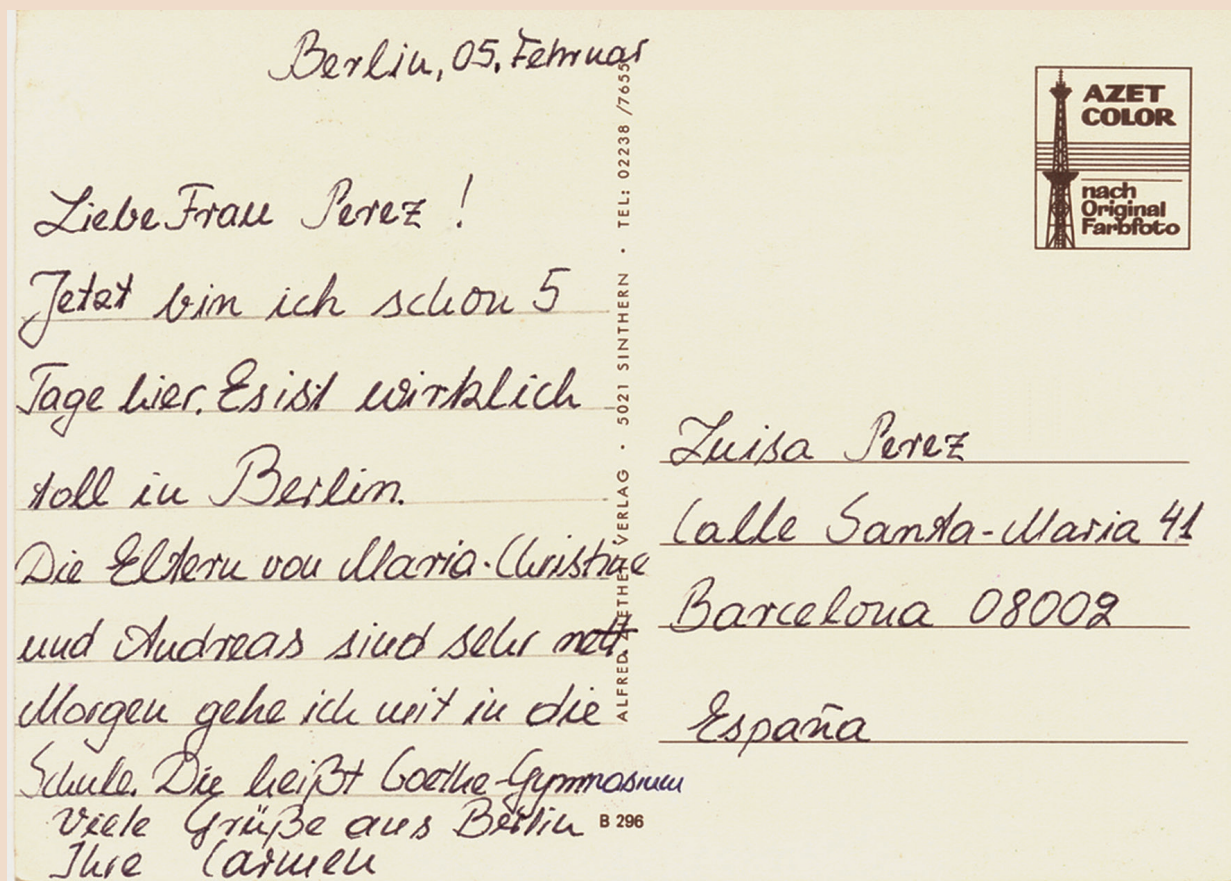 Berlin, 05. Februar
Liebe Frau Perez!
Jetzt bin ich schon 5
Tage hier. Es ist wirklich
toll in Berlin.
Die Eltern von Maria-Christine
und Andreas sind sehr nett
Morgen gehe ich mit in die
Schule. Die heißt Goethe-Gymnasium
Viele Grüße aus Berlin
Ihre Carmen
ALFRED ZETHE VERLAG · 5021 SINTHERN · TEL: 02238 /7655
B 296
AZET
COLOR
nach
Original
Farbfoto
Luisa Perez
Calle Santa-Maria 41
Barcelona 08002
España